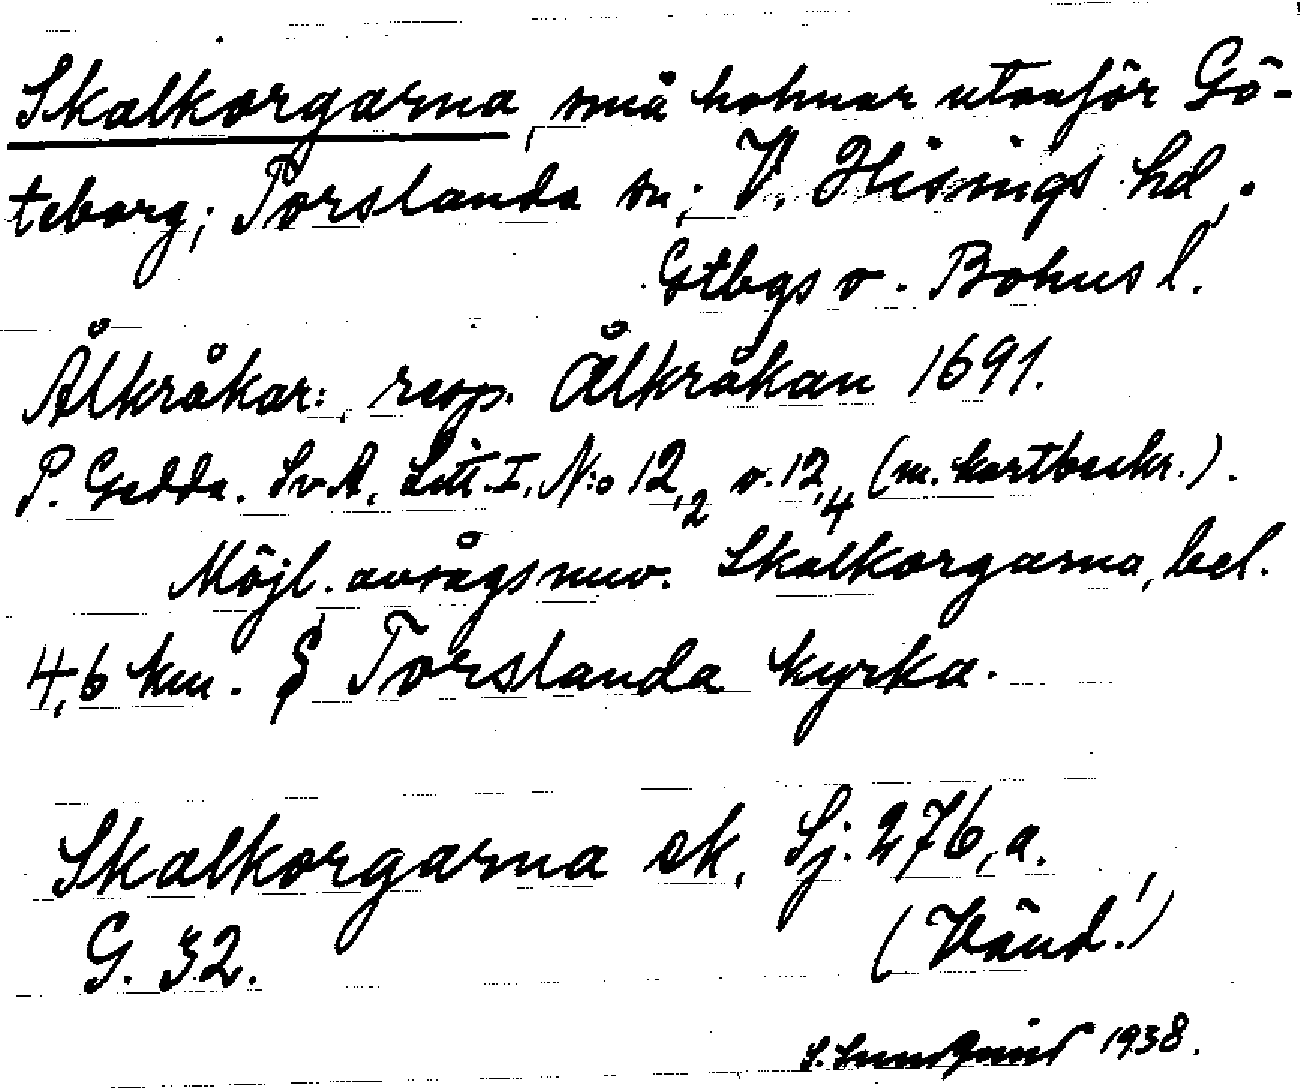 Skalkorgarna, små holmar utanför Gö-
teborg; Torslanda sn; V. Hisings hd,.
Gtbgs o. Bohus l.
Ålkråkar:, resp. Ålkråkan 1691.
P. Gedda. SvA, Litt. I, N:o 12,2 o. 12,4 (m. kortbeskr.).
Möjl. avsågs nuv. Skalkorgarna, bel.
4,6 km. S Torslanda kyrka.
Skalkorgarna sk. Sj. 276, a.
G. 32.
(Vänd!)
S. Lundqvist 1938.